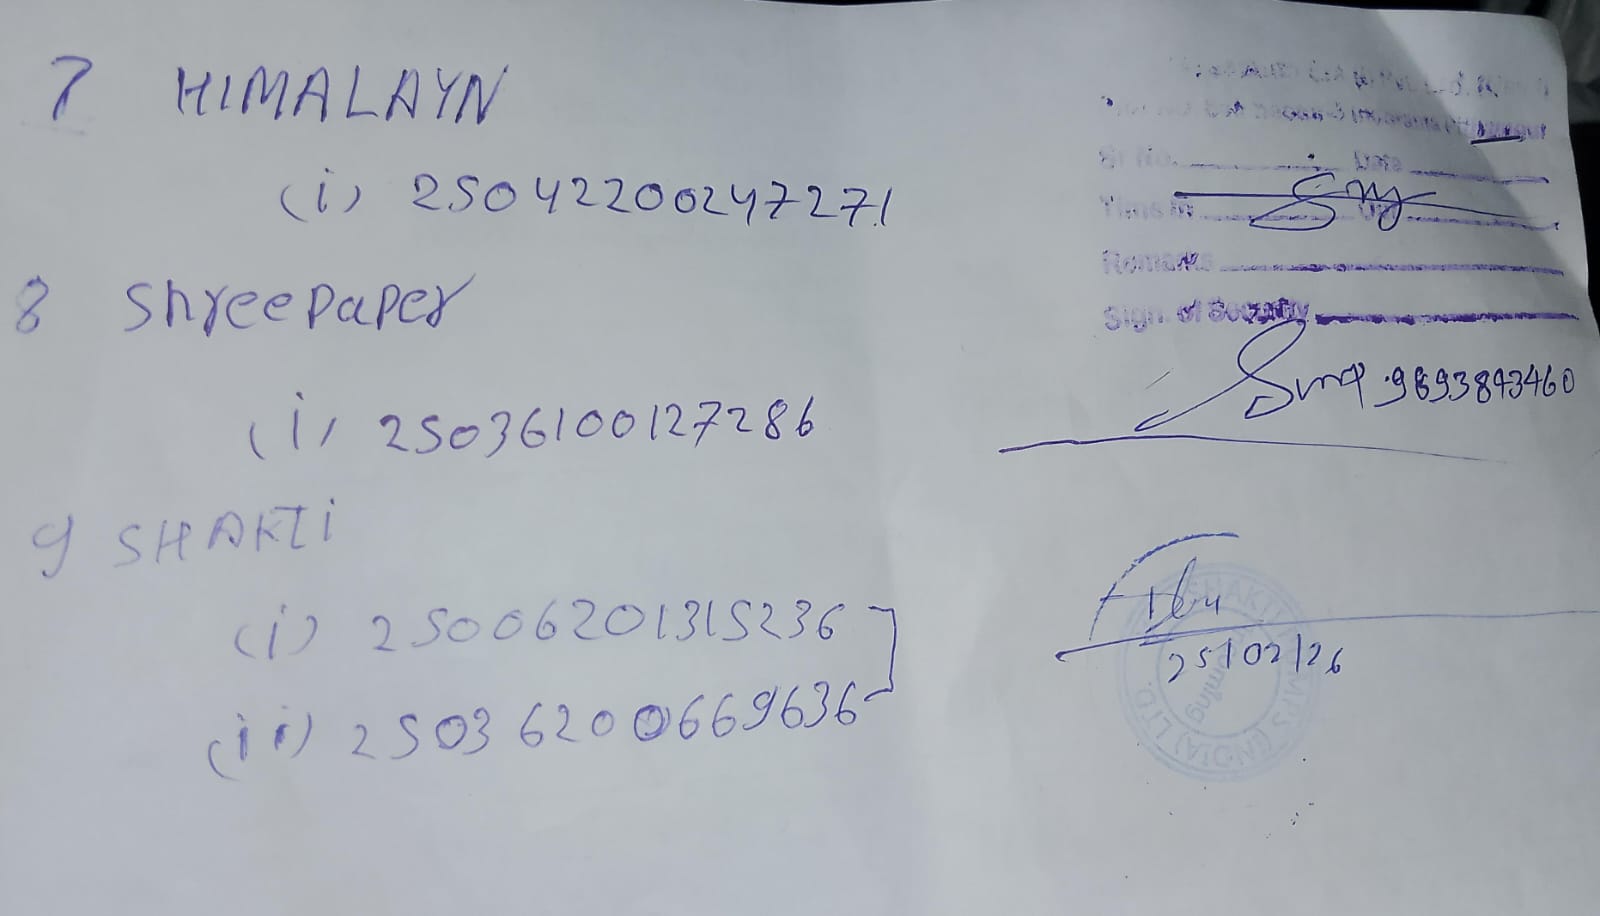 7 HIMALAYN
(i) 25042200247271
8 Shreepaper
(i) 25036100127286
9 SHAKTi
(i) 25006201315236
(ii) 25036200669636
Sr No. Date
Time In Out
Remarks
Sign. of Security
25/02/26
SHAKTI PUMPS (INDIA) LTD.